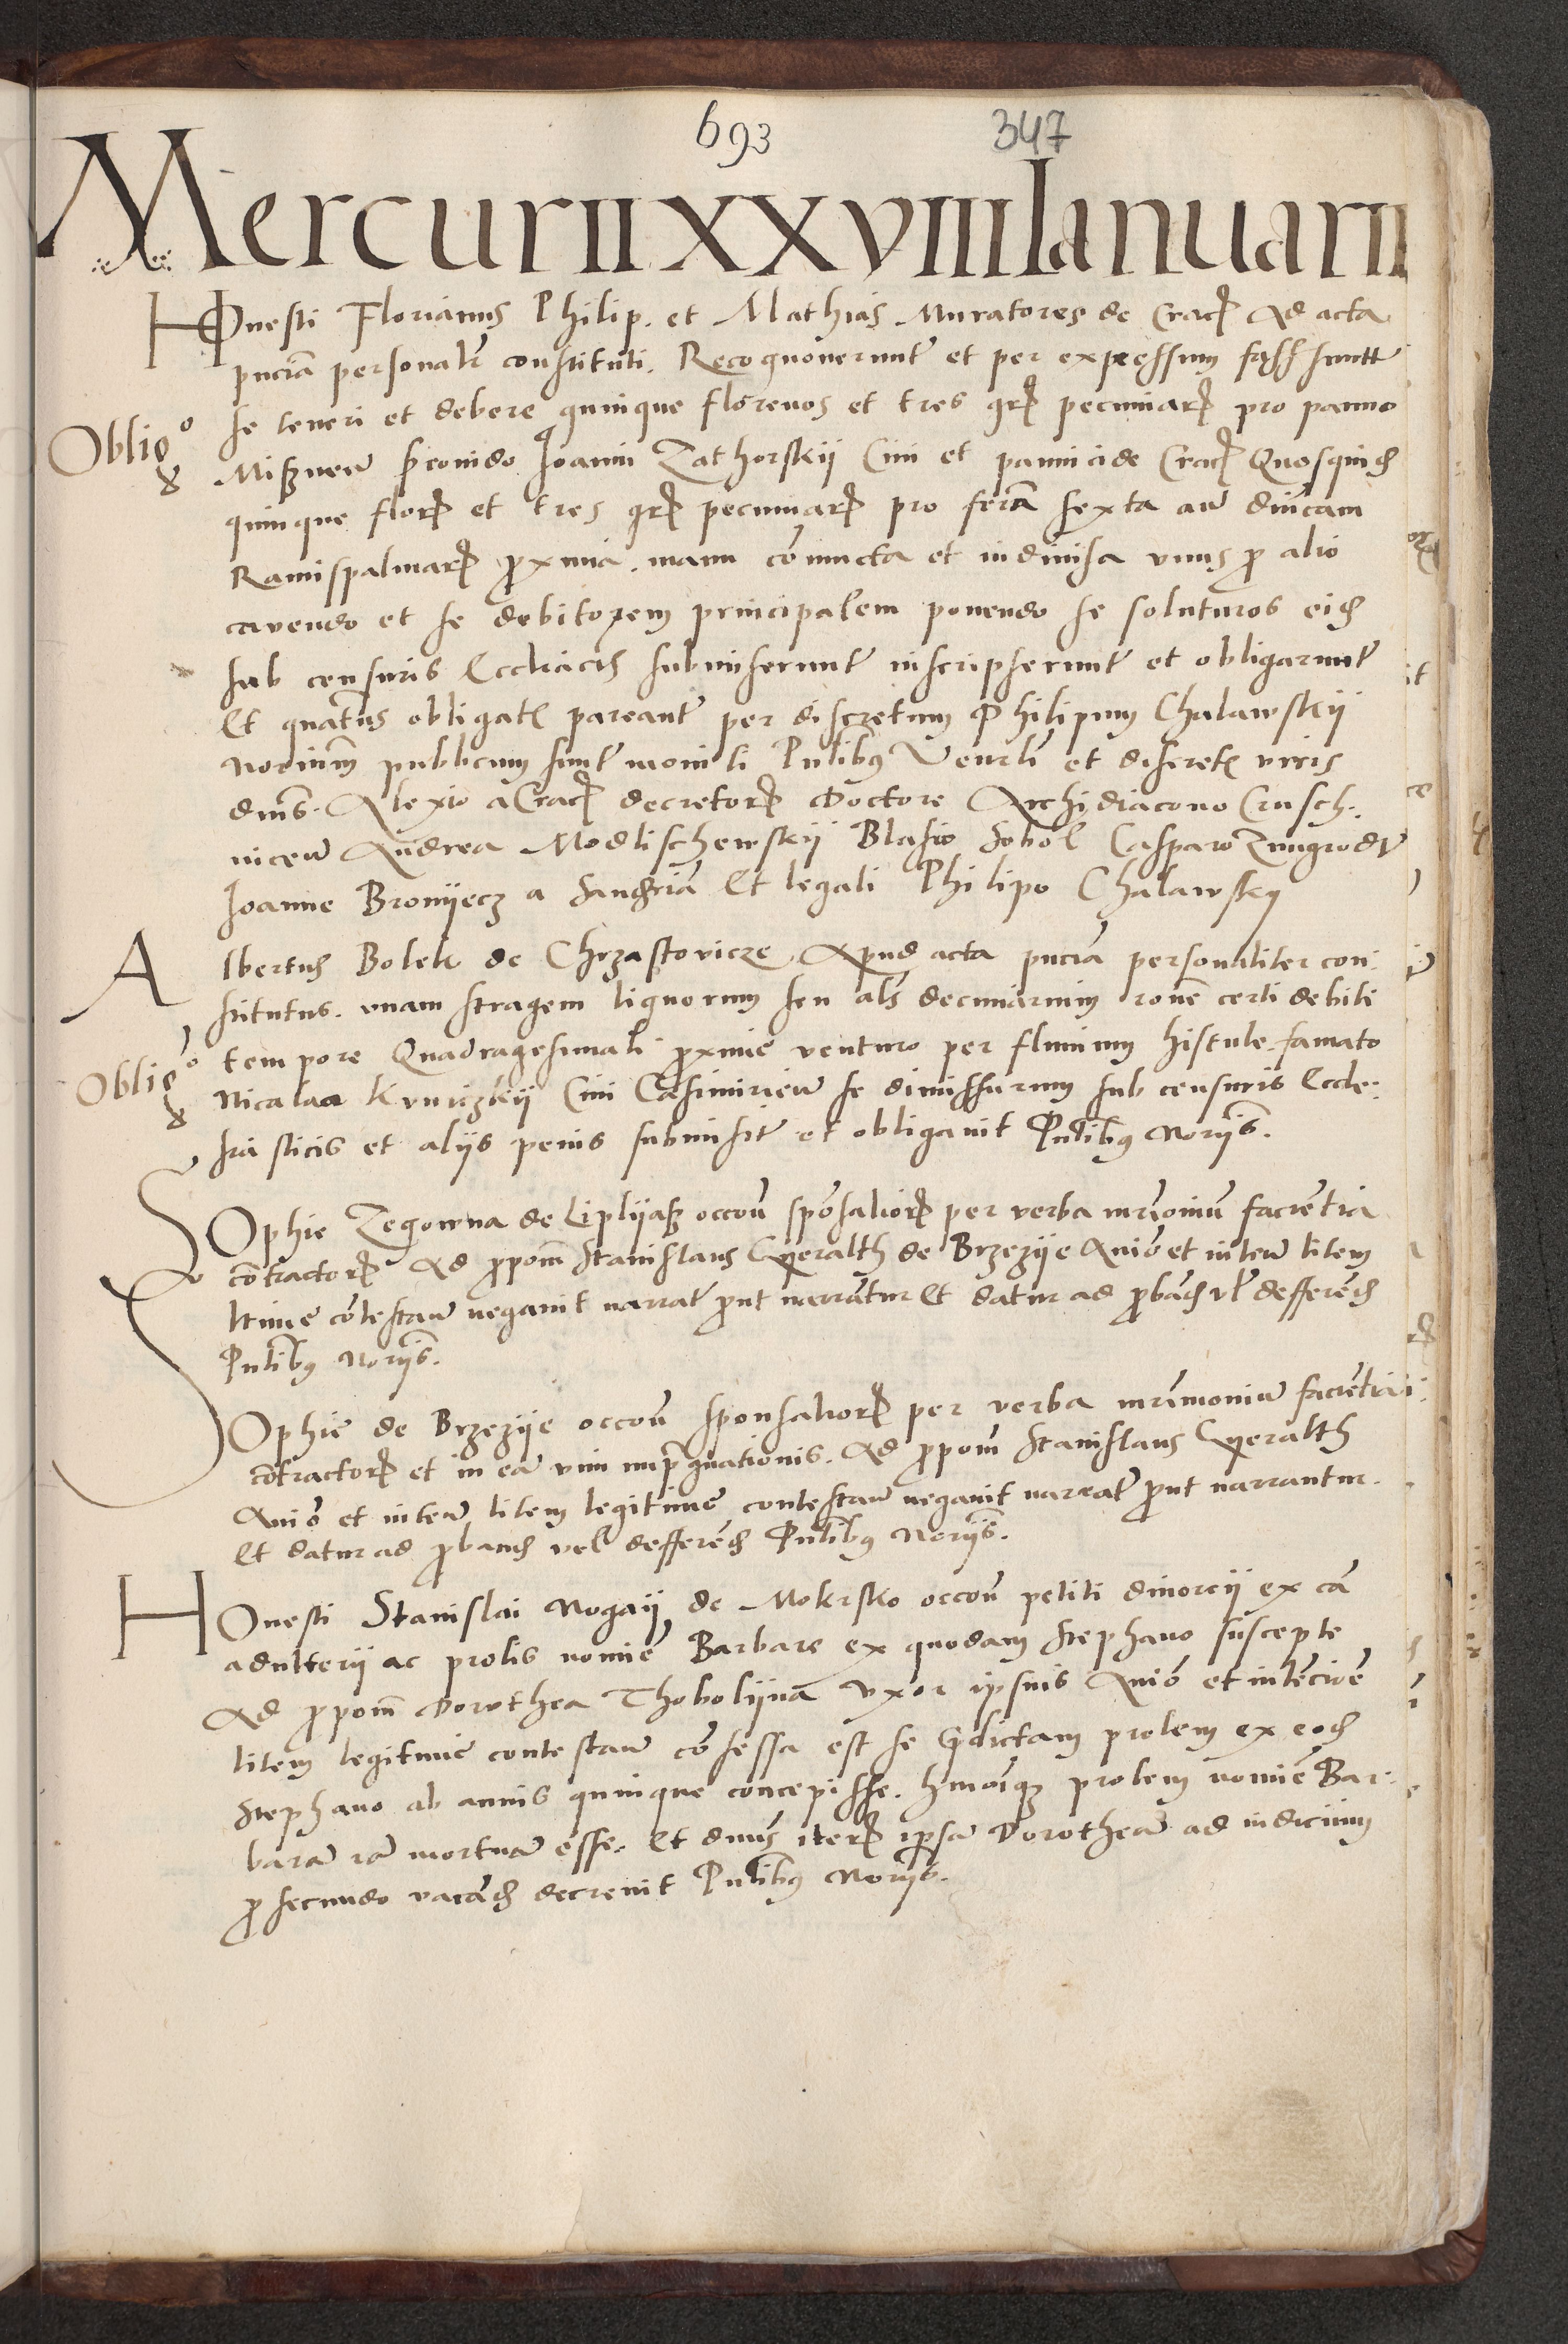 693 347
Mercurii XXVIIII Ianuarii
HOnesti Florianus Philip. et Mathias Muratores de Crac Ad acta
pnciā personalr constituti. Recognoverunt et per expressum fassi sunt
Oblig° se teneri et debere quinque florenos et tres gr pecuniar pro panno
Misznen Ioanni Zathorskij Civi et pannicide Crac Quosquid
quinque flor et tres gr pecuniar pro feria sexta an dnicam
Ramispalmar proxima. manu coniuncta et indivisa unus pro alio
cavendo et se debitorem principalem ponendo se soluturos eid
sub censuris Eccliacis submiserunt inscripserunt et obligarunt
Et quatenus obligat pareant per discretum Philipum Chalawskij
Notarium publicum sunt moniti Pntibus Venrli et discret viris
dnis. Alexio a Crac decretor Doctore Archidiacono Crusch.
vicen Andrea Modlischewskij Blasio Sobol Casparo
Ioanne Bronijecz a Et legali Philipo Chalawsky
Albertus Bolek de Chrzastovicze Apud acta pnciā personaliter con-
stitutus. unam stragem lignorum seu als decimarnim rone certi debiti
Oblig° tempore Quadragesimali proxime venturo per fluvium histule. famato
Nicalaa Civi Casimirien se dimissurum sub censuris Eccle-
siasticis et alijs penis submisit et obligavit Pntibus Norijs.
SOphie Zegowna de Liplijasz occon sponsalior per verba mrimonium facientia
contractor Ad propom Stanislaus Gyeralth de Brzezije Animo et inten litem
ltime contestan negavit narrat prout narrantur Et datur ad proband vl defferend
Pntibus Norijs.
SOphie de Brzezije occon sponsalior per verba mrimonium facientia
contractor et in ea vim imprgnationis. Ad propom Stanislaus Gyeralth
Animo et inten litem legitime contestan negavit narrat prout narrantur.
Et datur ad proband vel defferend Pntibus Norijs.
HOnesti Stanislai Nogaij de Mokrsko occon petiti divorcij ex cā
adulterij ac prolis nomine Barbare ex quodam Stephano suscepte
Ad propom Dorothea Thobolijna Vxor ipsius Animo et intencione
litem legitime contestan confessa est se predictam prolem ex eod
Stephano ab annis quinque concepisse. hmoiqz prolem nomine Bar-
baram iam mortuam esse. Et dnus iter ipsam Dorotheam ad iudicium
pro secundo vacand decrevit Pntibus Norijs.